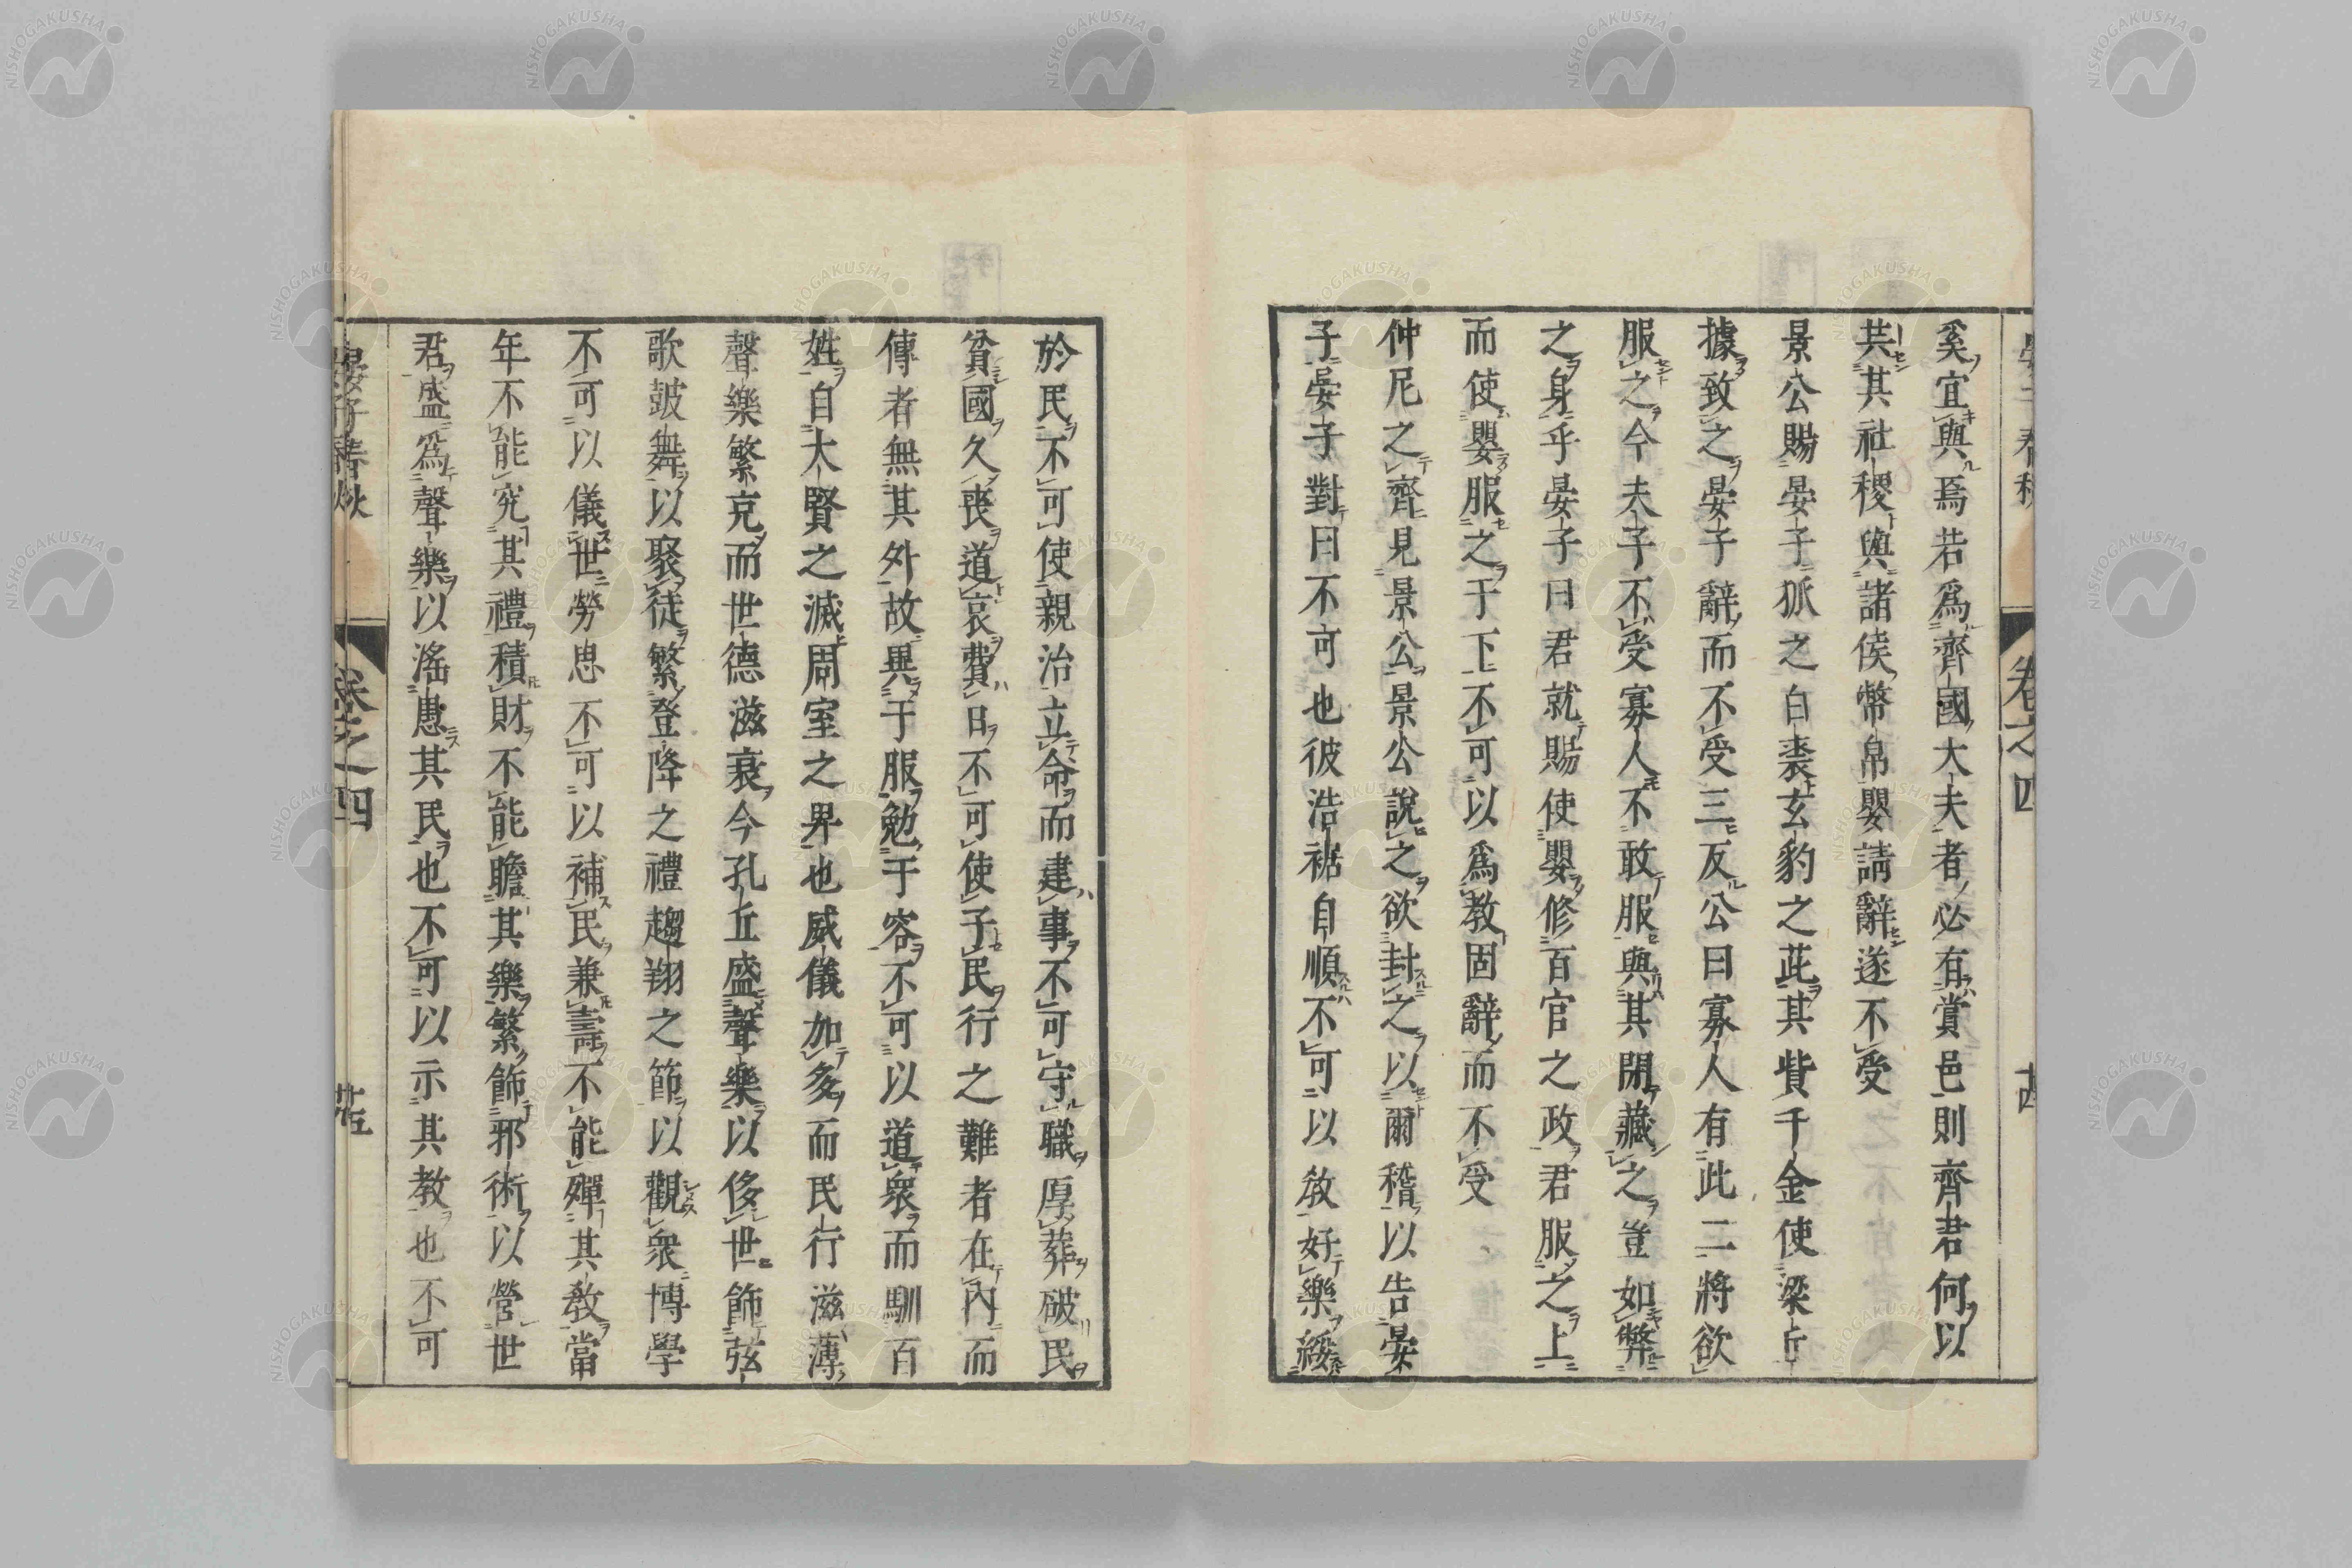 奚宜與焉若爲齊國大夫者必有賞邑則齊君何以
共其社稷與諸侯幣帛嬰請辭遂不受
景公賜晏子狐之白裘玄豹之茈其貲千金使梁丘
據致之晏子辭而不受三反公曰寡人有此二將欲
服之今夫子不受寡人不敢服與其閉藏之豈如弊
之身乎晏子曰君就賜使嬰修百官之政君服之上
而使嬰服之于下不可以爲教固辭而不受
仲尼之齊見景公景公說之欲封之以爾稽以告晏
子晏子對曰不可也彼浩裾自順不可以教好樂綏
於民不可使親治立命而建事不可守職厚葬破民
貧國久喪道哀費日不可使子民行之難者在內而
傳者無其外故異于服勉于容不可以道衆而馴百
姓自大賢之滅周室之卑也威儀加多而民行滋薄
聲樂繁充而世德滋衰今孔丘盛聲樂以侈世飾弦
歌鼓舞以聚徒繁登降之禮趨翔之節以觀衆博學
不可以儀世勞思不可以補民兼壽不能殫其教當
年不能究其禮積財不能贍其樂繁飾邪術以營世
君盛爲聲樂以淫愚其民也不可以示其教也不可
晏子春秋
卷之四
NISHOGAKUSHA